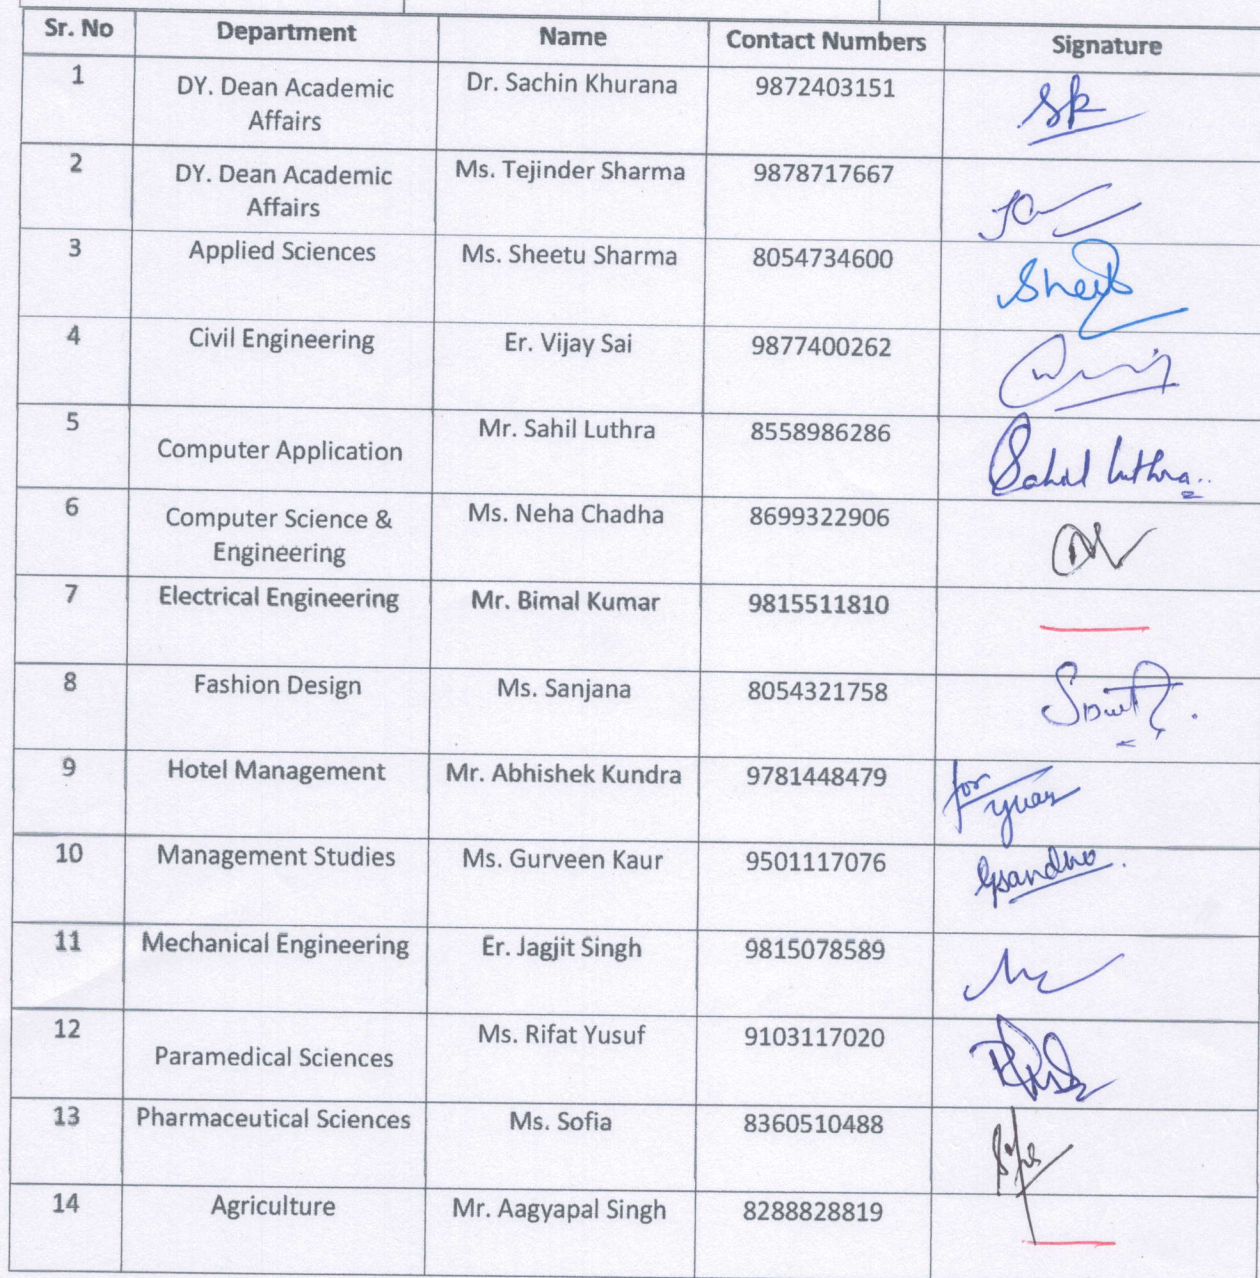 Sr. No Department Name Contact Numbers Signature
1 DY. Dean Academic Dr. Sachin Khurana 9872403151 SK
Affairs
2 DY. Dean Academic Ms. Tejinder Sharma 9878717667
Affairs
3 Applied Sciences Ms. Sheetu Sharma 8054734600
4 Civil Engineering Er. Vijay Sai 9877400262
5 Computer Application Mr. Sahil Luthra 8558986286 Sahil Luthra
6 Computer Science & Ms. Neha Chadha 8699322906
Engineering
7 Electrical Engineering Mr. Bimal Kumar 9815511810
8 Fashion Design Ms. Sanjana 8054321758
9 Hotel Management Mr. Abhishek Kundra 9781448479 for
10 Management Studies Ms. Gurveen Kaur 9501117076
11 Mechanical Engineering Er. Jagjit Singh 9815078589
12 Paramedical Sciences Ms. Rifat Yusuf 9103117020
13 Pharmaceutical Sciences Ms. Sofia 8360510488
14 Agriculture Mr. Aagyapal Singh 8288828819